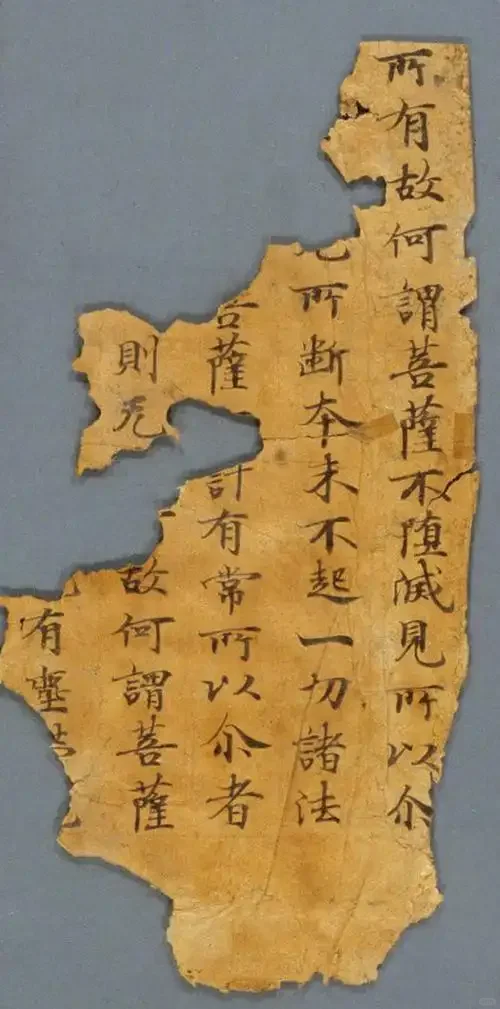 所有故何謂菩薩不堕滅見所以尒
所断夲末不起一切諸法
菩薩計有常所以尒者
則无故何謂菩薩
有